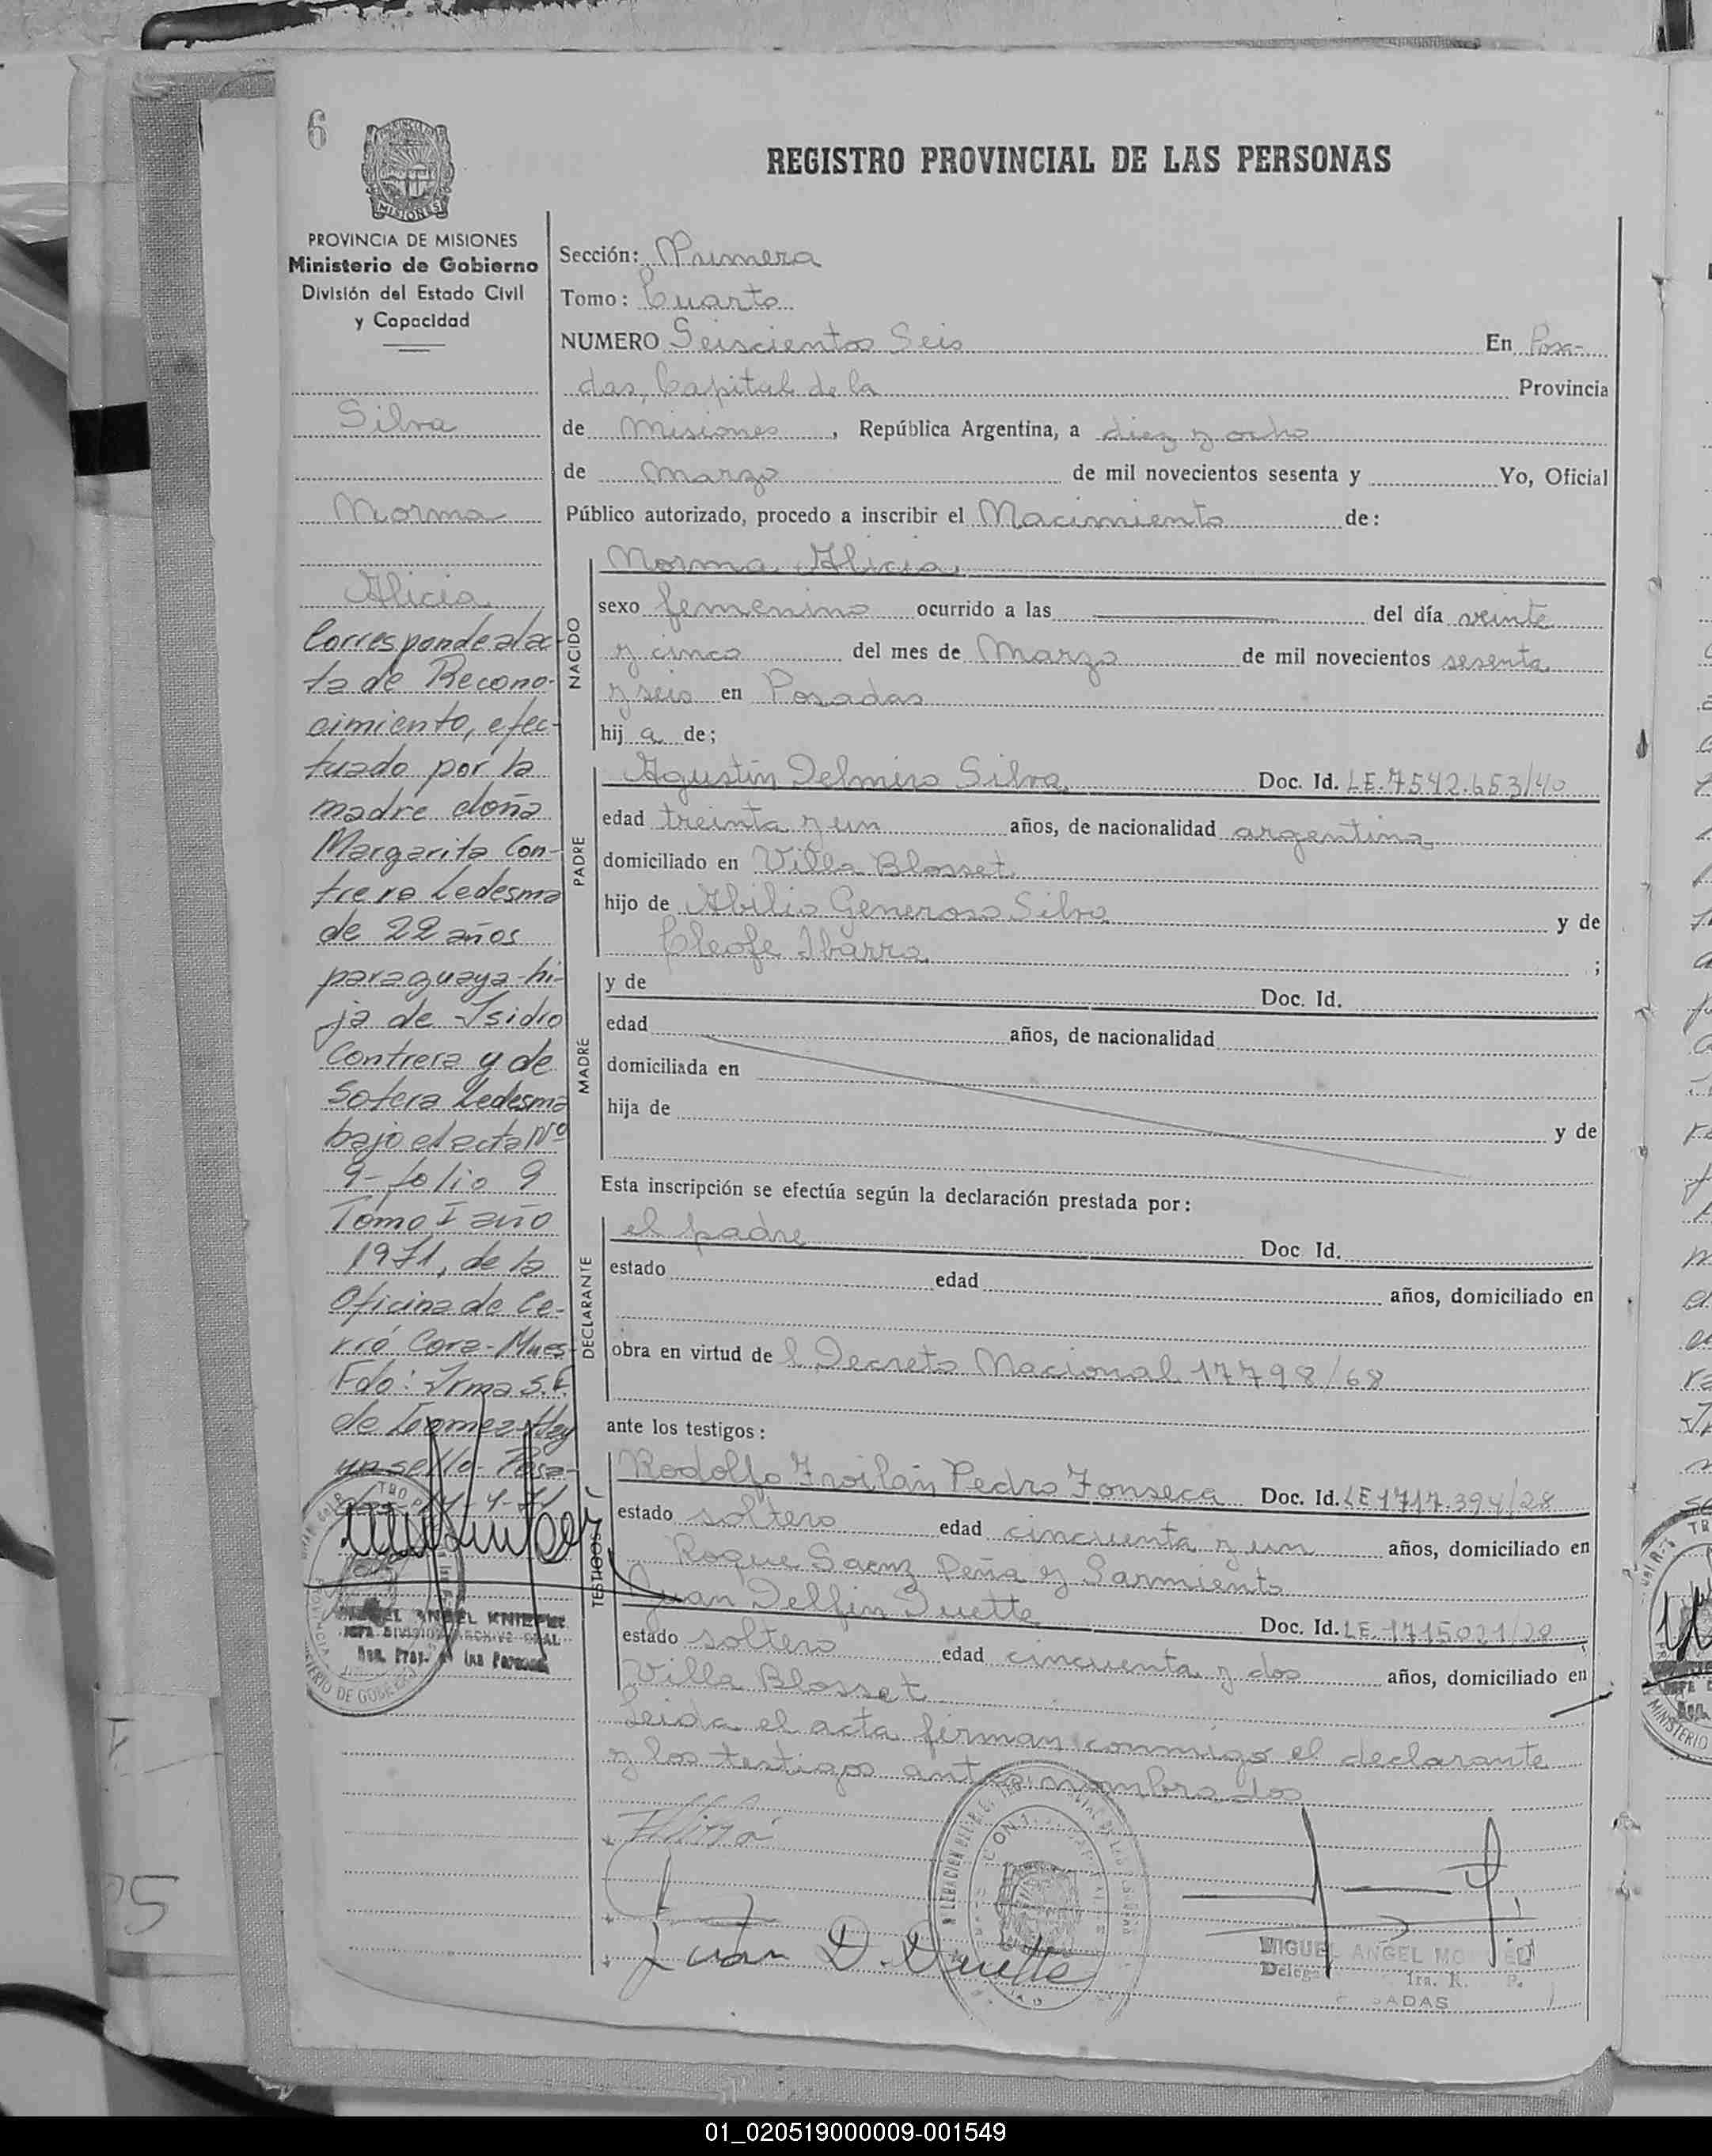 6
MISIONES
REGISTRO PROVINCIAL DE LAS PERSONAS
PROVINCIA DE MISIONES
Ministerio de Gobierno
División del Estado Civil
y Capacidad
Silva
Norma
Alicia
Corresponde al ac-
ta de Recono-
cimiento, efec-
tuado por la
madre doña
Margarita Con-
trera Ledesma
de 22 años
paraguaya-hi-
ja de Isidro
Contrera y de
Sotera Ledesma
bajo el acta Nº
9-folio 9
Tomo I año
1971, de la
Oficina de Ce-
rró Cora-Mnes
Fdo: Irma S.E.
de Gomez-Hay
un sello-Posa-
Sección: Primera
Tomo: Cuarto
NUMERO Seiscientos Seis En Posa-
das, Capital de la Provincia
de Misiones, República Argentina, a diez y ocho
de Marzo de mil novecientos sesenta y Yo, Oficial
Público autorizado, procedo a inscribir el Nacimiento de:
NACIDO
Norma Alicia
sexo femenino ocurrido a las del día veinte
y cinco del mes de Marzo de mil novecientos sesenta
y seis en Posadas
hij a de;
PADRE
Agustín Delmiro Silva, Doc. Id. LE.7542.653/40
edad treinta y un años, de nacionalidad argentina
domiciliado en Villa Blosset
hijo de Abilio Generoso Silva y de
Cleofe Ibarra ;
MADRE
y de Doc. Id.
edad años, de nacionalidad
domiciliada en
hija de y de
Esta inscripción se efectúa según la declaración prestada por:
DECLARANTE
el padre Doc. Id.
estado edad años, domiciliado en
obra en virtud de l Decreto Nacional 17798/68
ante los testigos:
TESTIGOS
Rodolfo Froilán Pedro Fonseca Doc. Id. LE 1717.394/28
estado soltero edad cincuenta y un años, domiciliado en
Roque Saenz Peña y Sarmiento
Juan Delfin Duette Doc. Id. LE.1715021/28
estado soltero edad cincuenta y dos años, domiciliado en
Villa Blosset
Leida el acta firman conmigo el declarante
y los testigos antes nombrados
Juan D. Duette
MIGUEL ANGEL
01_020519000009-001549